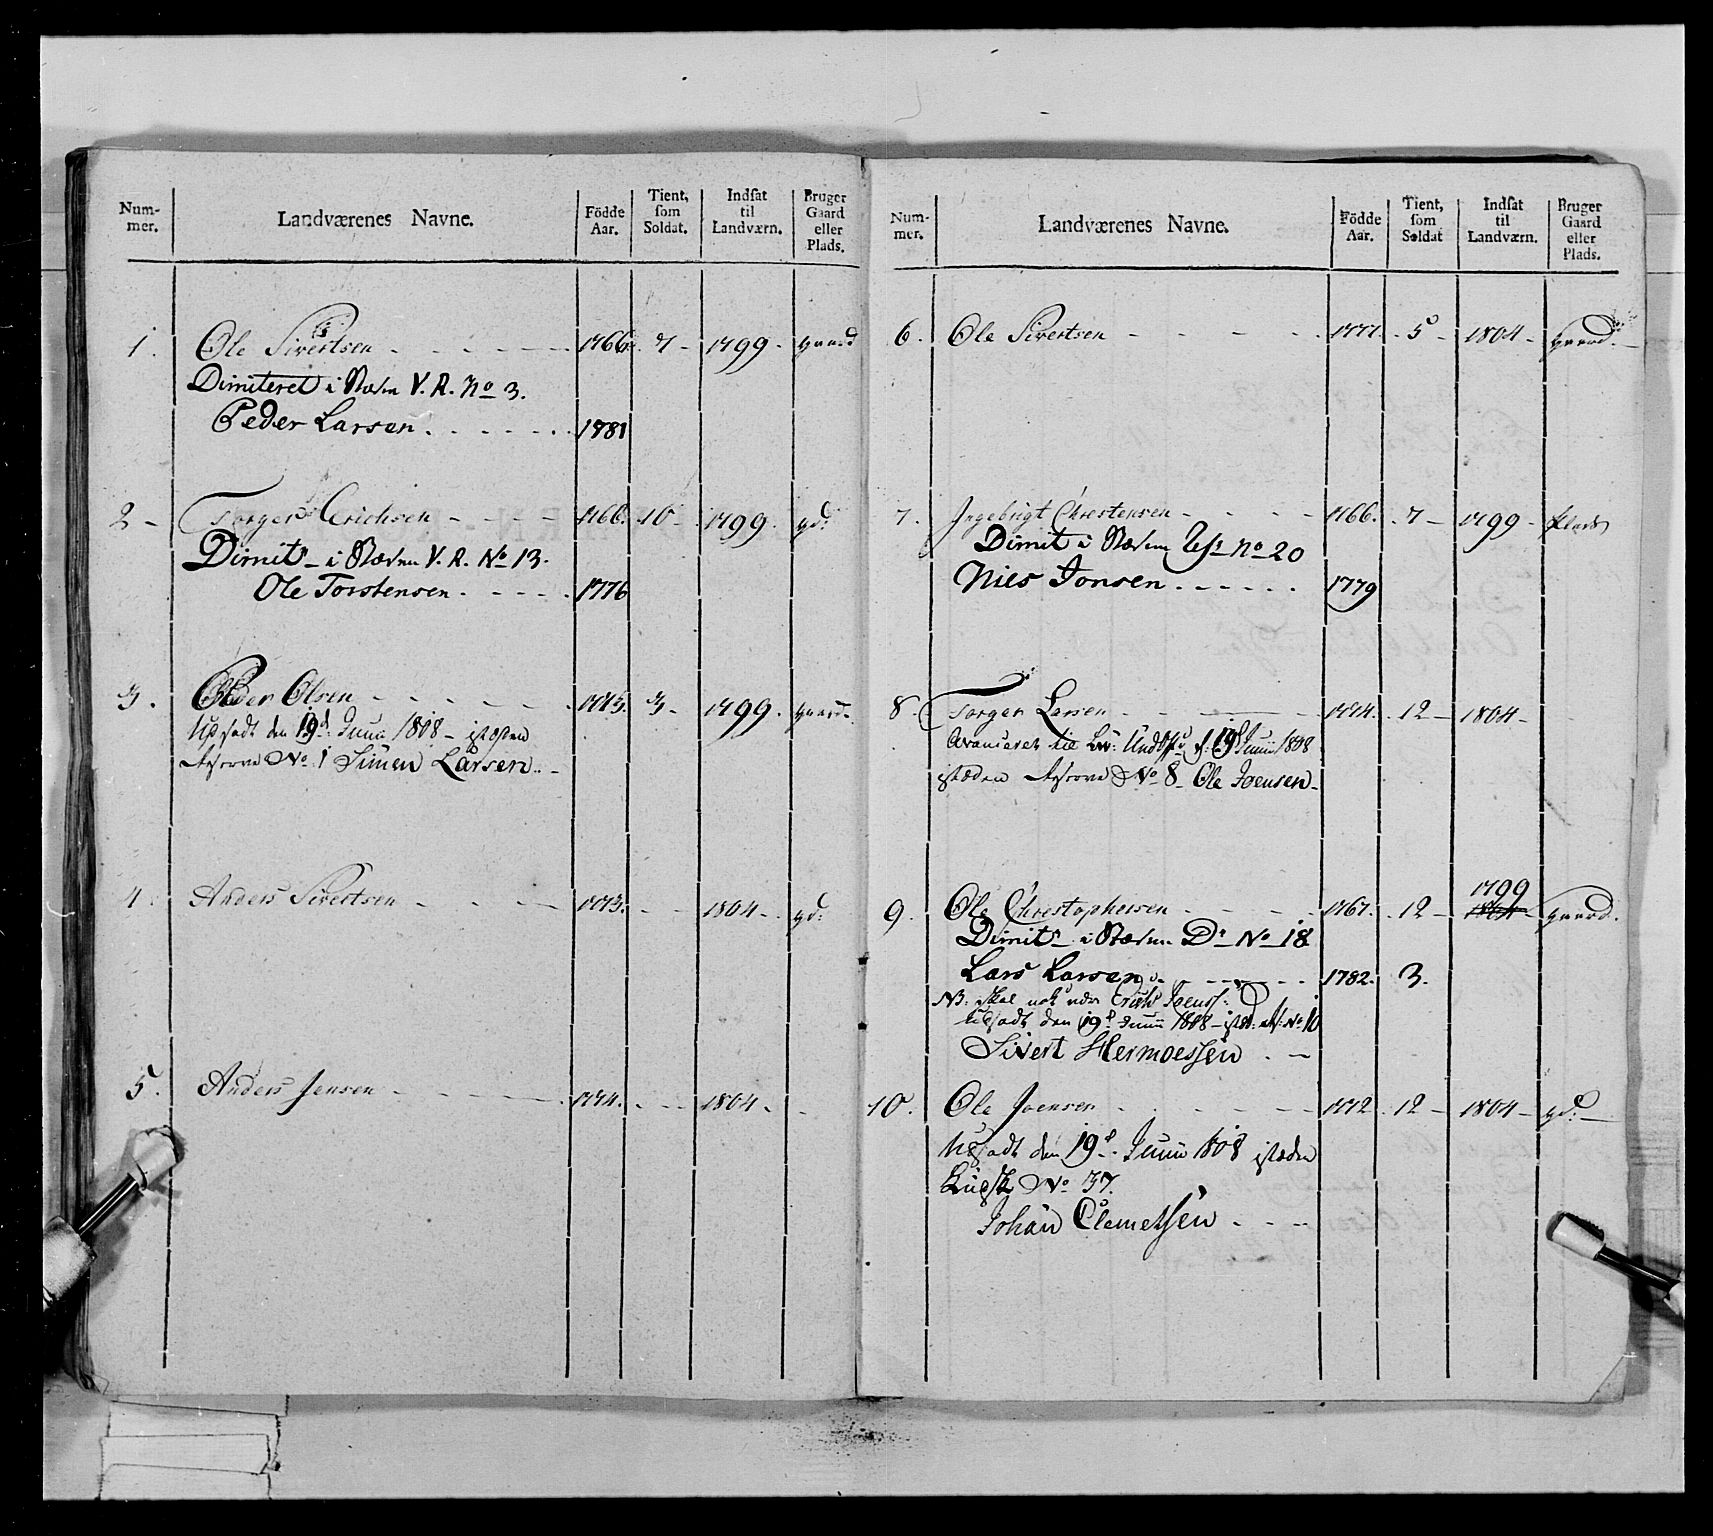 Num-
mer.
Landværenes Navne.
Födde
Aar.
Tient,
som
Soldat.
Indsat
til
Landværn.
Bruger
Gaard
eller
Plads.
1. Ole Sivertsen 1766. 7 1799. gaard
Dimiteret i Steden V. R. No 3.
Peder Larsen 1781
2 Torger Erichsen 1766. 10 1799. gd:
Dimitr i Steden V. R. No 13.
Ole Torstensen 1776
3. Peder Olsen 1775. 3 1799. gaard.
Udsadt den 19d: Junii 1808 isteden
Reserve No 1 Simen Larsen
4. Anders Sivertsen 1773. 1804 gd:
5. Anders Jensen 1774. 1804
Num-
mer.
Landværenes Navne.
Födde
Aar.
Tient,
som
Soldat
Indsat
til
Landværn.
Bruger
Gaard
eller
Plads.
6. Ole Sivertsen 1777. 5 1804 gaard.
7. Ingebrigt Chrestensen 1766. 7 1799 Plads
Dimit i Steden No 20
Niels Jonsen 1779
8 Torger Larsen 1774. 12 1804
Avanceret til d: 19d Junii 1808
isteden Reserve No 8 Ole Joensen
9. Ole Chrestophersen 1767. 12 1799 1804 gaard.
Dimitr i Steden Do No 18
Lars Larsen 1782. 3.
NB: skal nok være Erich Joens:
udsadt den 19d Junii 1808 No 10
Sivert Hermoessen
10. Ole Joensen 1772. 12 1804 gd:
Udsadt den 19d Junii 1808 isteden
No 37.
Johan Clemetsen